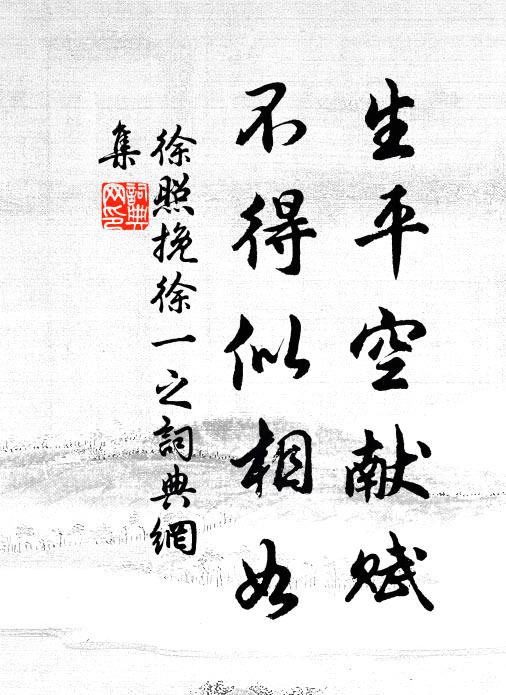 生平空献赋
不得似相如
徐照挽徐一之詞典網
集
詞典网印